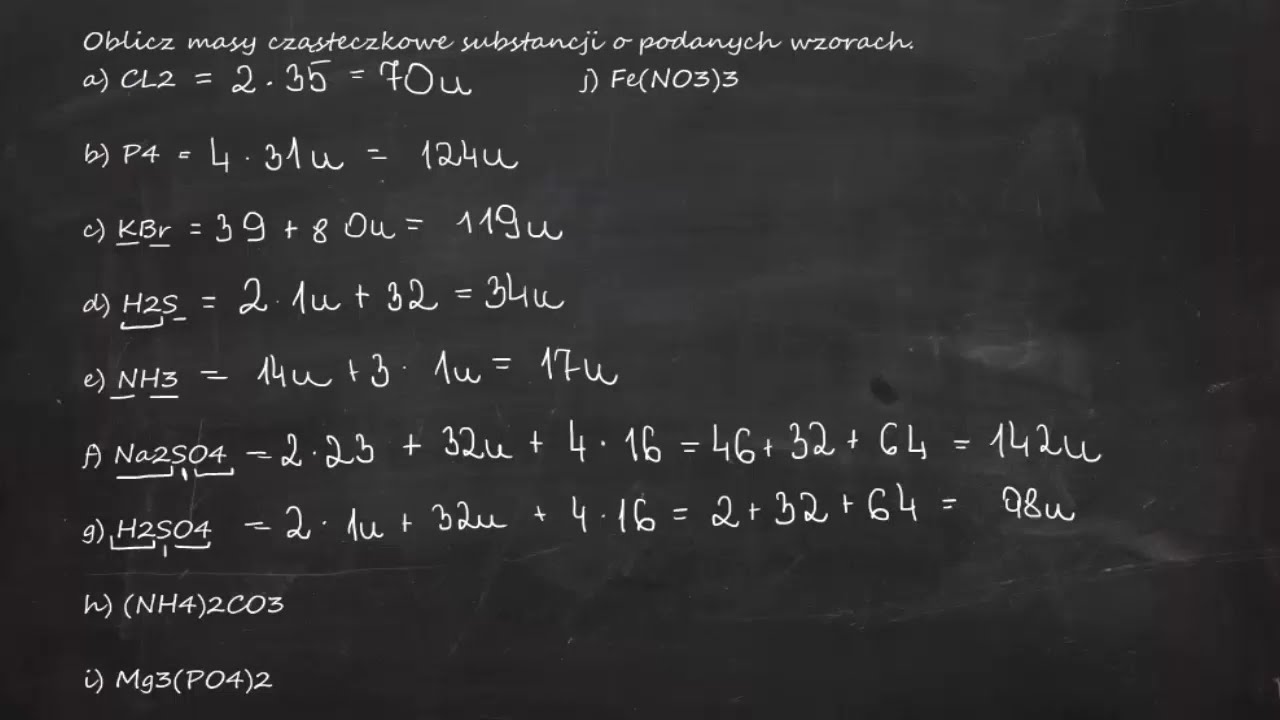 Oblicz masy cząsteczkowe substancji o podanych wzorach.
a) CL2 = 2 · 35 = 70u
j) Fe(NO3)3
b) P4 = 4 · 31u = 124u
c) KBr = 39 + 80u = 119u
d) H2S = 2 · 1u + 32 = 34u
e) NH3 = 14u + 3 · 1u = 17u
f) Na2SO4 = 2 · 23 + 32u + 4 · 16 = 46 + 32 + 64 = 142u
g) H2SO4 = 2 · 1u + 32u + 4 · 16 = 2 + 32 + 64 = 98u
h) (NH4)2CO3
i) Mg3(PO4)2